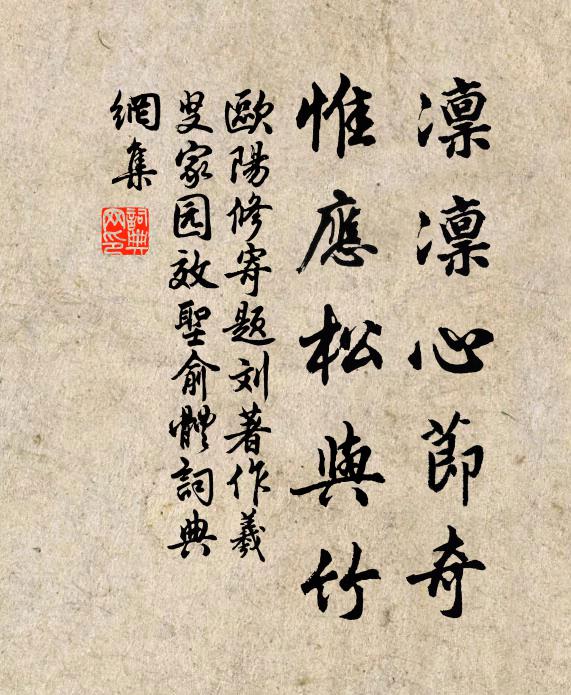 凜凜心節奇
惟應松與竹
歐陽修寄題刘著作羲
叟家园效聖俞體詞典
網集
詞典网印